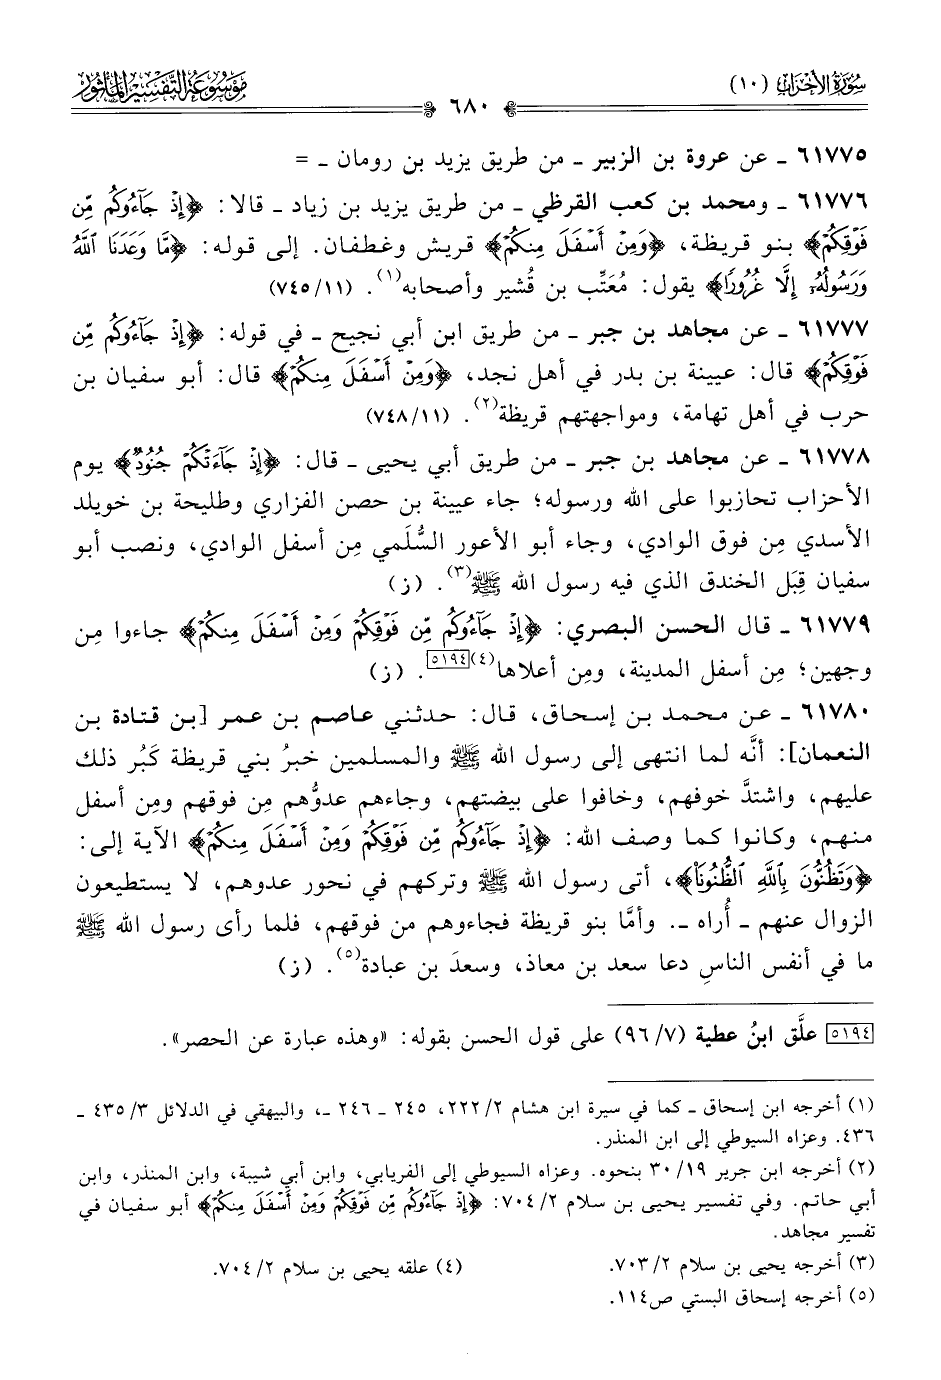 سُورَةُ الأَحْزَاب (١٠)
٦٨٠
مَوْسُوعَةُ التَّفْسِيْرِ المَأْثُور
٦١٧٧٥ ـ عن عروة بن الزبير ـ من طريق يزيد بن رومان ـ =
٦١٧٧٦ ـ ومحمد بن كعب القرظي ـ من طريق يزيد بن زياد ـ قالا: ﴿إِذْ جَآءُوكُم مِّن
فَوْقِكُمْ﴾ بنو قريظة، ﴿وَمِنْ أَسْفَلَ مِنكُمْ﴾ قريش وغطفان. إلى قوله: ﴿مَّا وَعَدَنَا ٱللَّهُ
وَرَسُولُهُۥٓ إِلَّا غُرُورًا﴾ يقول: مُعَتِّب بن قُشير وأصحابه(١). (١١/ ٧٤٥)
٦١٧٧٧ ـ عن مجاهد بن جبر ـ من طريق ابن أبي نجيح ـ في قوله: ﴿إِذْ جَآءُوكُم مِّن
فَوْقِكُمْ﴾ قال: عيينة بن بدر في أهل نجد، ﴿وَمِنْ أَسْفَلَ مِنكُمْ﴾ قال: أبو سفيان بن
حرب في أهل تهامة، ومواجهتهم قريظة(٢). (١١/ ٧٤٨)
٦١٧٧٨ ـ عن مجاهد بن جبر ـ من طريق أبي يحيى ـ قال: ﴿إِذْ جَآءَتْكُمْ جُنُودٌ﴾ يوم
الأحزاب تحازبوا على الله ورسوله؛ جاء عيينة بن حصن الفزاري وطليحة بن خويلد
الأسدي مِن فوق الوادي، وجاء أبو الأعور السُّلَمي مِن أسفل الوادي، ونصب أبو
سفيان قِبَل الخندق الذي فيه رسول الله ﷺ(٣). (ز)
٦١٧٧٩ ـ قال الحسن البصري: ﴿إِذْ جَآءُوكُم مِّن فَوْقِكُمْ وَمِنْ أَسْفَلَ مِنكُمْ﴾ جاءوا مِن
وجهين؛ مِن أسفل المدينة، ومِن أعلاها(٤)[٥١٩٤]. (ز)
٦١٧٨٠ ـ عن محمد بن إسحاق، قال: حدثني عاصم بن عمر [بن قتادة بن
النعمان]: أنَّه لما انتهى إلى رسول الله ﷺ والمسلمين خبرُ بني قريظة كَبُر ذلك
عليهم، واشتدَّ خوفهم، وخافوا على بيضتهم، وجاءهم عدوُّهم مِن فوقهم ومِن أسفل
منهم، وكانوا كما وصف الله: ﴿إِذْ جَآءُوكُم مِّن فَوْقِكُمْ وَمِنْ أَسْفَلَ مِنكُمْ﴾ الآية إلى:
﴿وَتَظُنُّونَ بِٱللَّهِ ٱلظُّنُونَا۠﴾، أتى رسول الله ﷺ وتركهم في نحور عدوهم، لا يستطيعون
الزوال عنهم ـ أُراه ـ. وأمَّا بنو قريظة فجاءوهم من فوقهم، فلما رأى رسول الله ﷺ
ما في أنفس الناسِ دعا سعد بن معاذ، وسعدَ بن عبادة(٥). (ز)
[٥١٩٤] علَّق ابنُ عطية (٧/ ٩٦) على قول الحسن بقوله: «وهذه عبارة عن الحصر».
(١) أخرجه ابن إسحاق ـ كما في سيرة ابن هشام ٢/ ٢٢٢، ٢٤٥ ـ ٢٤٦ ـ، والبيهقي في الدلائل ٣/ ٤٣٥ ـ
٤٣٦. وعزاه السيوطي إلى ابن المنذر.
(٢) أخرجه ابن جرير ١٩/ ٣٠ بنحوه. وعزاه السيوطي إلى الفريابي، وابن أبي شيبة، وابن المنذر، وابن
أبي حاتم. وفي تفسير يحيى بن سلام ٢/ ٧٠٤: ﴿إِذْ جَآءُوكُم مِّن فَوْقِكُمْ وَمِنْ أَسْفَلَ مِنكُمْ﴾ أبو سفيان في
تفسير مجاهد.
(٣) أخرجه يحيى بن سلام ٢/ ٧٠٣. (٤) علقه يحيى بن سلام ٢/ ٧٠٤.
(٥) أخرجه إسحاق البستي ص١١٤.